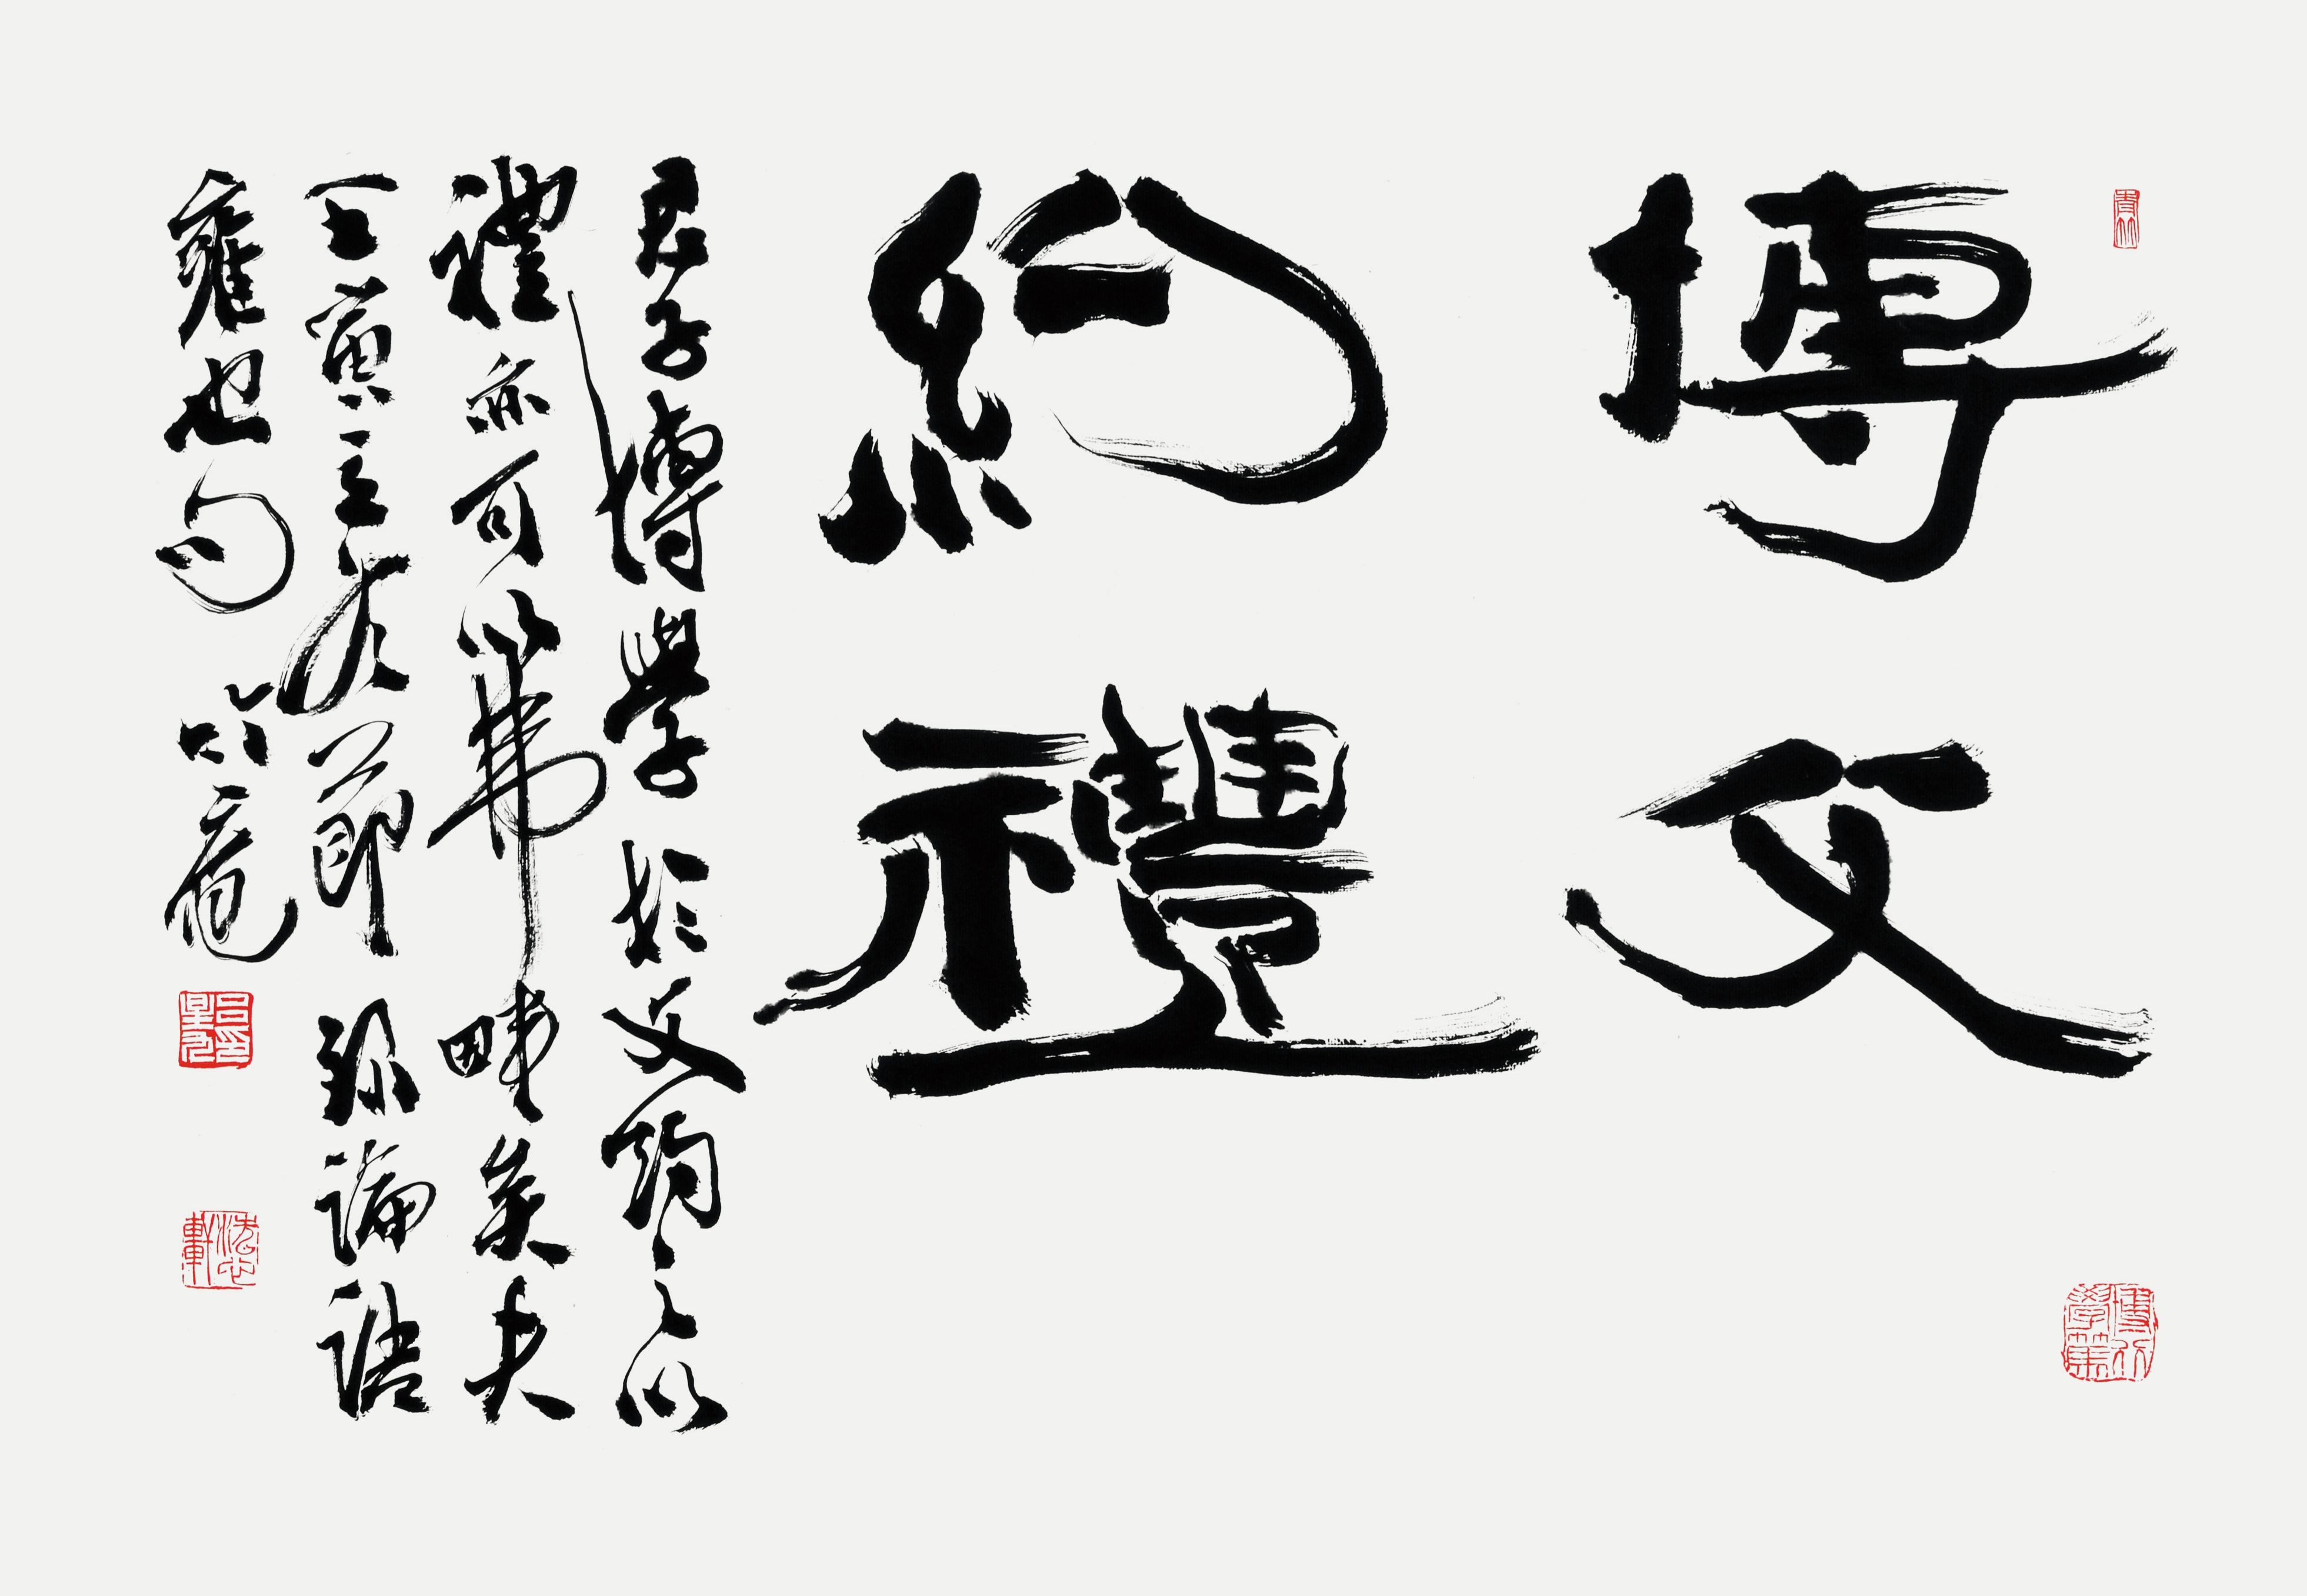 博文
約禮
君子博學於文約之以
禮亦可以弗畔矣夫
壬寅立節 論語
雍也句